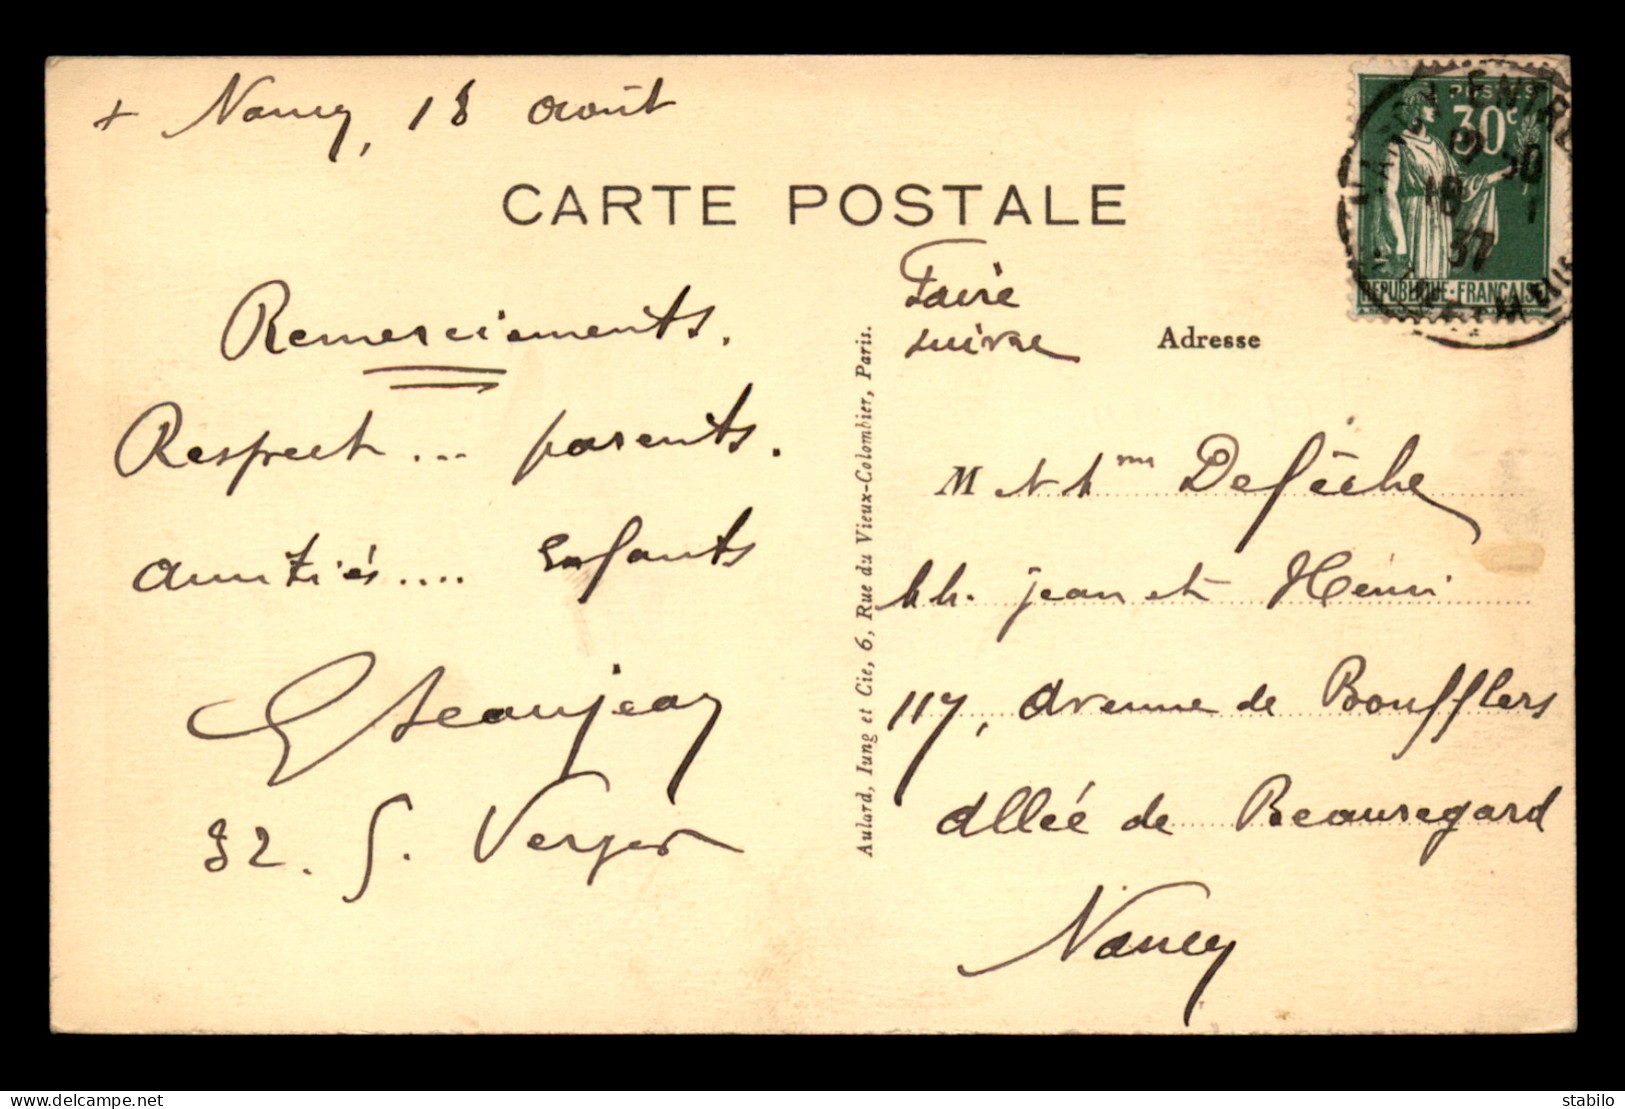 + Nancy, 18 Août
CARTE POSTALE
Remerciements.
Respect... parents.
Amitiés.... Enfants
32. S. Verger
Aulard, Iung et Cie, 6, Rue du Vieux-Colombier, Paris.
POSTES
30c
37
REPUBLIQUE-FRANCAISE
Faire
suivre
Adresse
M et Mme Defêche
MM. Jean et Henri
117, Avenue de Boufflers
Allée de Beauregard
Nancy
delcampe.net
stabilo